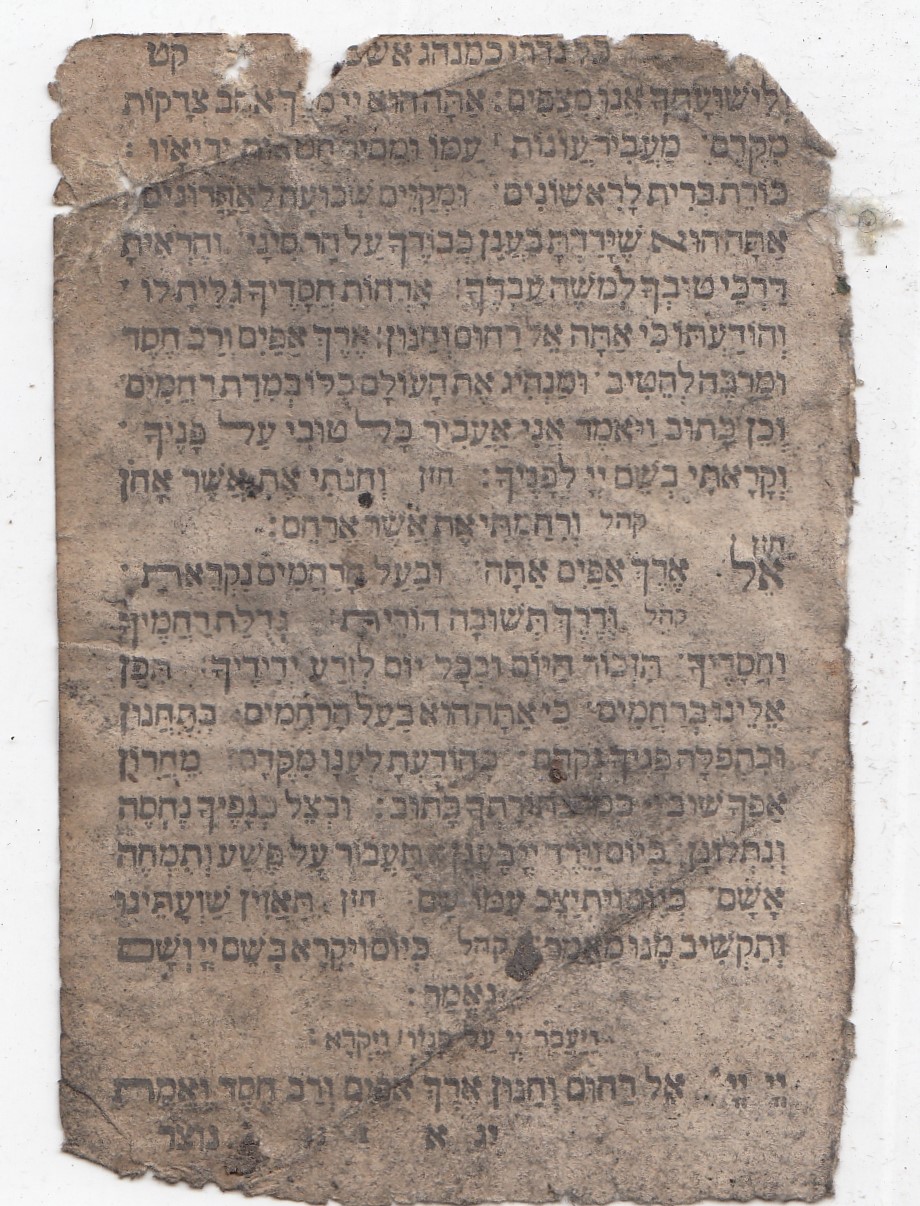 כל נדרי כמנהג אשכ קט
ולישועתך אנו מצפים: אתה הוא יי מלך אוהב צדקות
מקדם מעביר עונות עמו ומסיר חטאות יריאיו :
כורת ברית לראשונים ומקיים שבועה לאחרונים :
אתה הוא שירדת בענן כבודך על הר סיני והראית
דרכי טובך למשה עבדך: ארחות חסדיך גלית לו
והודעתו כי אתה אל רחום וחנון: ארך אפים ורב חסד
ומרבה להטיב ומנהיג את העולם כלו במדת רחמים
וכן כתוב ויאמר אני אעביר כל טובי על פניך
וקראתי בשם יי לפניך: חזן וחנתי את אשר אחן
קהל ורחמתי את אשר ארחם:
חזן
אל ארך אפים אתה ובעל הרחמים נקראת :
קהל ודרך תשובה הורית גדלת רחמיך
וחסדיך תזכור היום ובכל יום לזרע ידידיך: תפן
אלינו ברחמים כי אתה הוא בעל הרחמים בתחנון
ובתפלה פניך נקדם כהודעת לענו מקדם מחרון
אפך שוב כמו בתורתך כתוב: ובצל כנפיך נחסה
ונתלונן כיום וירד יי בענן תעבור על פשע ותמחה
אשם כיום ויתיצב עמו שם חזן תאזין שועתינו
ותקשיב מנו מאמר קהל כיום ויקרא בשם יי ושם
נאמר:
ויעבר יי על פניו ויקרא:
יי יי אל רחום וחנון ארך אפים ורב חסד ואמת
יג א נוצר